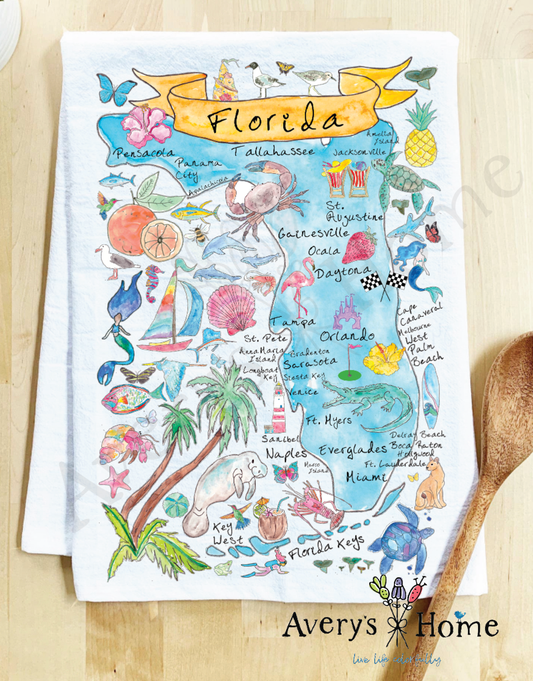 Florida
Pensacola
Panama
City
Apalachicola
Tallahassee
Amelia
Island
Jacksonville
St.
Augustine
Gainesville
Ocala
Daytona
Tampa
Orlando
Cape
Canaveral
Melbourne
West
Palm
Beach
St. Pete
Anna Maria
Island
Bradenton
Sarasota
Longboat
Key
Siesta Key
Venice
Ft. Myers
Sanibel
Naples
Marco
Island
Everglades
Delray Beach
Boca Raton
Hollywood
Ft. Lauderdale
Miami
Key
West
Florida Keys
Avery's Home
live life